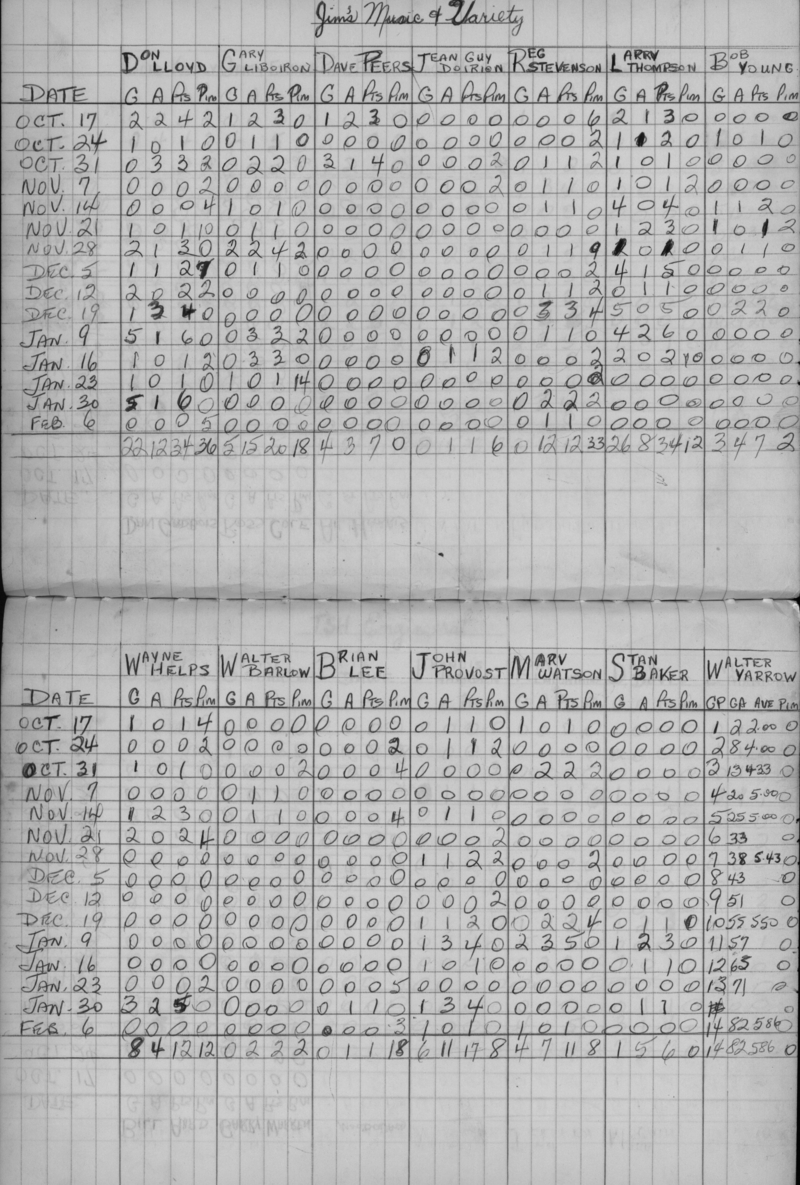 Jim's Music & Variety
DON LLOYD GARY LIBOIRON DAVE PEERS JEAN GUY DOIRIEN REG STEVENSON LARRY THOMPSON BOB YOUNG
DATE G A Pts Pim G A Pts Pim G A Pts Pim G A Pts Pim G A Pts Pim G A Pts Pim G A Pts Pim
OCT. 17 2 2 4 2 1 2 3 0 1 2 3 0 0 0 0 0 0 0 0 6 2 1 3 0 0 0 0 0
OCT. 24 1 0 1 0 0 1 1 0 0 0 0 0 0 0 0 0 0 0 0 2 1 1 2 0 1 0 1 0
OCT. 31 0 3 3 2 0 2 2 0 3 1 4 0 0 0 0 2 0 1 1 2 1 0 1 0 0 0 0 0
NOV. 7 0 0 0 2 0 0 0 0 0 0 0 0 0 0 0 2 0 1 1 0 1 0 1 2 0 0 0 0
NOV. 14 0 0 0 4 1 0 1 0 0 0 0 0 0 0 0 0 0 1 1 0 4 0 4 0 1 1 2 0
NOV 21 1 0 1 10 0 1 1 0 0 0 0 0 0 0 0 0 0 0 0 0 1 2 3 0 1 0 1 2
NOV. 28 2 1 3 0 2 2 4 2 0 0 0 0 0 0 0 0 0 1 1 9 1 0 1 0 0 1 1 0
DEC. 5 1 1 2 7 0 1 1 0 0 0 0 0 0 0 0 0 0 0 0 2 4 1 5 0 0 0 0 0
DEC. 12 2 0 2 2 0 0 0 0 0 0 0 0 0 0 0 0 0 1 1 2 0 1 1 0 0 0 0 0
DEC. 19 1 3 4 0 0 0 0 0 0 0 0 0 0 0 0 0 0 3 3 4 5 0 5 0 0 2 2 0
JAN. 9 5 1 6 0 0 3 3 2 0 0 0 0 0 0 0 0 0 1 1 0 4 2 6 0 0 0 0 0
JAN. 16 1 0 1 2 0 3 3 0 0 0 0 0 0 1 1 2 0 0 0 2 2 0 2 10 0 0 0 0
JAN. 23 1 0 1 0 1 0 1 14 0 0 0 0 0 0 0 0 0 0 0 2 0 0 0 0 0 0 0 0
JAN. 30 5 1 6 0 0 0 0 0 0 0 0 0 0 0 0 0 0 2 2 2 0 0 0 0 0 0 0 0
FEB. 6 0 0 0 5 0 0 0 0 0 0 0 0 0 0 0 0 0 1 1 0 0 0 0 0 0 0 0 0
22 12 34 36 5 15 20 18 4 3 7 0 0 1 1 6 0 12 12 33 26 8 34 12 3 4 7 2
WAYNE HELPS WALTER BARLOW BRIAN LEE JOHN PROVOST MARV WATSON STAN BAKER WALTER YARROW
DATE G A Pts Pim G A Pts Pim G A Pts Pim G A Pts Pim G A Pts Pim G A Pts Pim GP GA AVE Pim
OCT. 17 1 0 1 4 0 0 0 0 0 0 0 0 0 1 1 0 1 0 1 0 0 0 0 0 1 2 2.00 0
OCT. 24 0 0 0 2 0 0 0 0 0 0 0 2 0 1 1 2 0 0 0 0 0 0 0 0 2 8 4.00 0
OCT. 31 1 0 1 0 0 0 0 2 0 0 0 4 0 0 0 0 0 2 2 2 0 0 0 0 3 13 4.33 0
NOV. 7 0 0 0 0 0 1 1 0 0 0 0 0 0 0 0 0 0 0 0 0 0 0 0 0 4 20 5.00 0
NOV. 14 1 2 3 0 0 1 1 0 0 0 0 4 0 1 1 0 0 0 0 0 0 0 0 0 5 25 5.00 0
NOV. 21 2 0 2 4 0 0 0 0 0 0 0 0 0 0 0 2 0 0 0 0 0 0 0 0 6 33 0
NOV. 28 0 0 0 0 0 0 0 0 0 0 0 0 1 1 2 2 0 0 0 2 0 0 0 0 7 38 5.43 0
DEC. 5 0 0 0 0 0 0 0 0 0 0 0 0 0 0 0 0 0 0 0 0 0 0 0 0 8 43 0
DEC 12 0 0 0 0 0 0 0 0 0 0 0 0 0 0 0 2 0 0 0 0 0 0 0 0 9 51 0
DEC. 19 0 0 0 0 0 0 0 0 0 0 0 0 1 1 2 0 0 2 2 4 0 1 1 0 10 55 5.50 0
JAN. 9 0 0 0 0 0 0 0 0 0 0 0 0 1 3 4 0 2 3 5 0 1 2 3 0 11 57 0
JAN. 16 0 0 0 0 0 0 0 0 0 0 0 0 1 0 1 0 0 0 0 0 0 1 1 0 12 65 0
JAN. 23 0 0 0 2 0 0 0 0 0 0 0 5 0 0 0 0 0 0 0 0 0 0 0 0 13 71 0
JAN. 30 3 2 5 0 0 0 0 0 0 1 1 0 1 3 4 0 0 0 0 0 0 1 1 0
FEB. 6 0 0 0 0 0 0 0 0 0 0 0 3 1 0 1 0 1 0 1 0 0 0 0 0 14 82 5.86 0
8 4 12 12 0 2 2 2 0 1 1 18 6 11 17 8 4 7 11 8 1 5 6 0 14 82 5.86 0